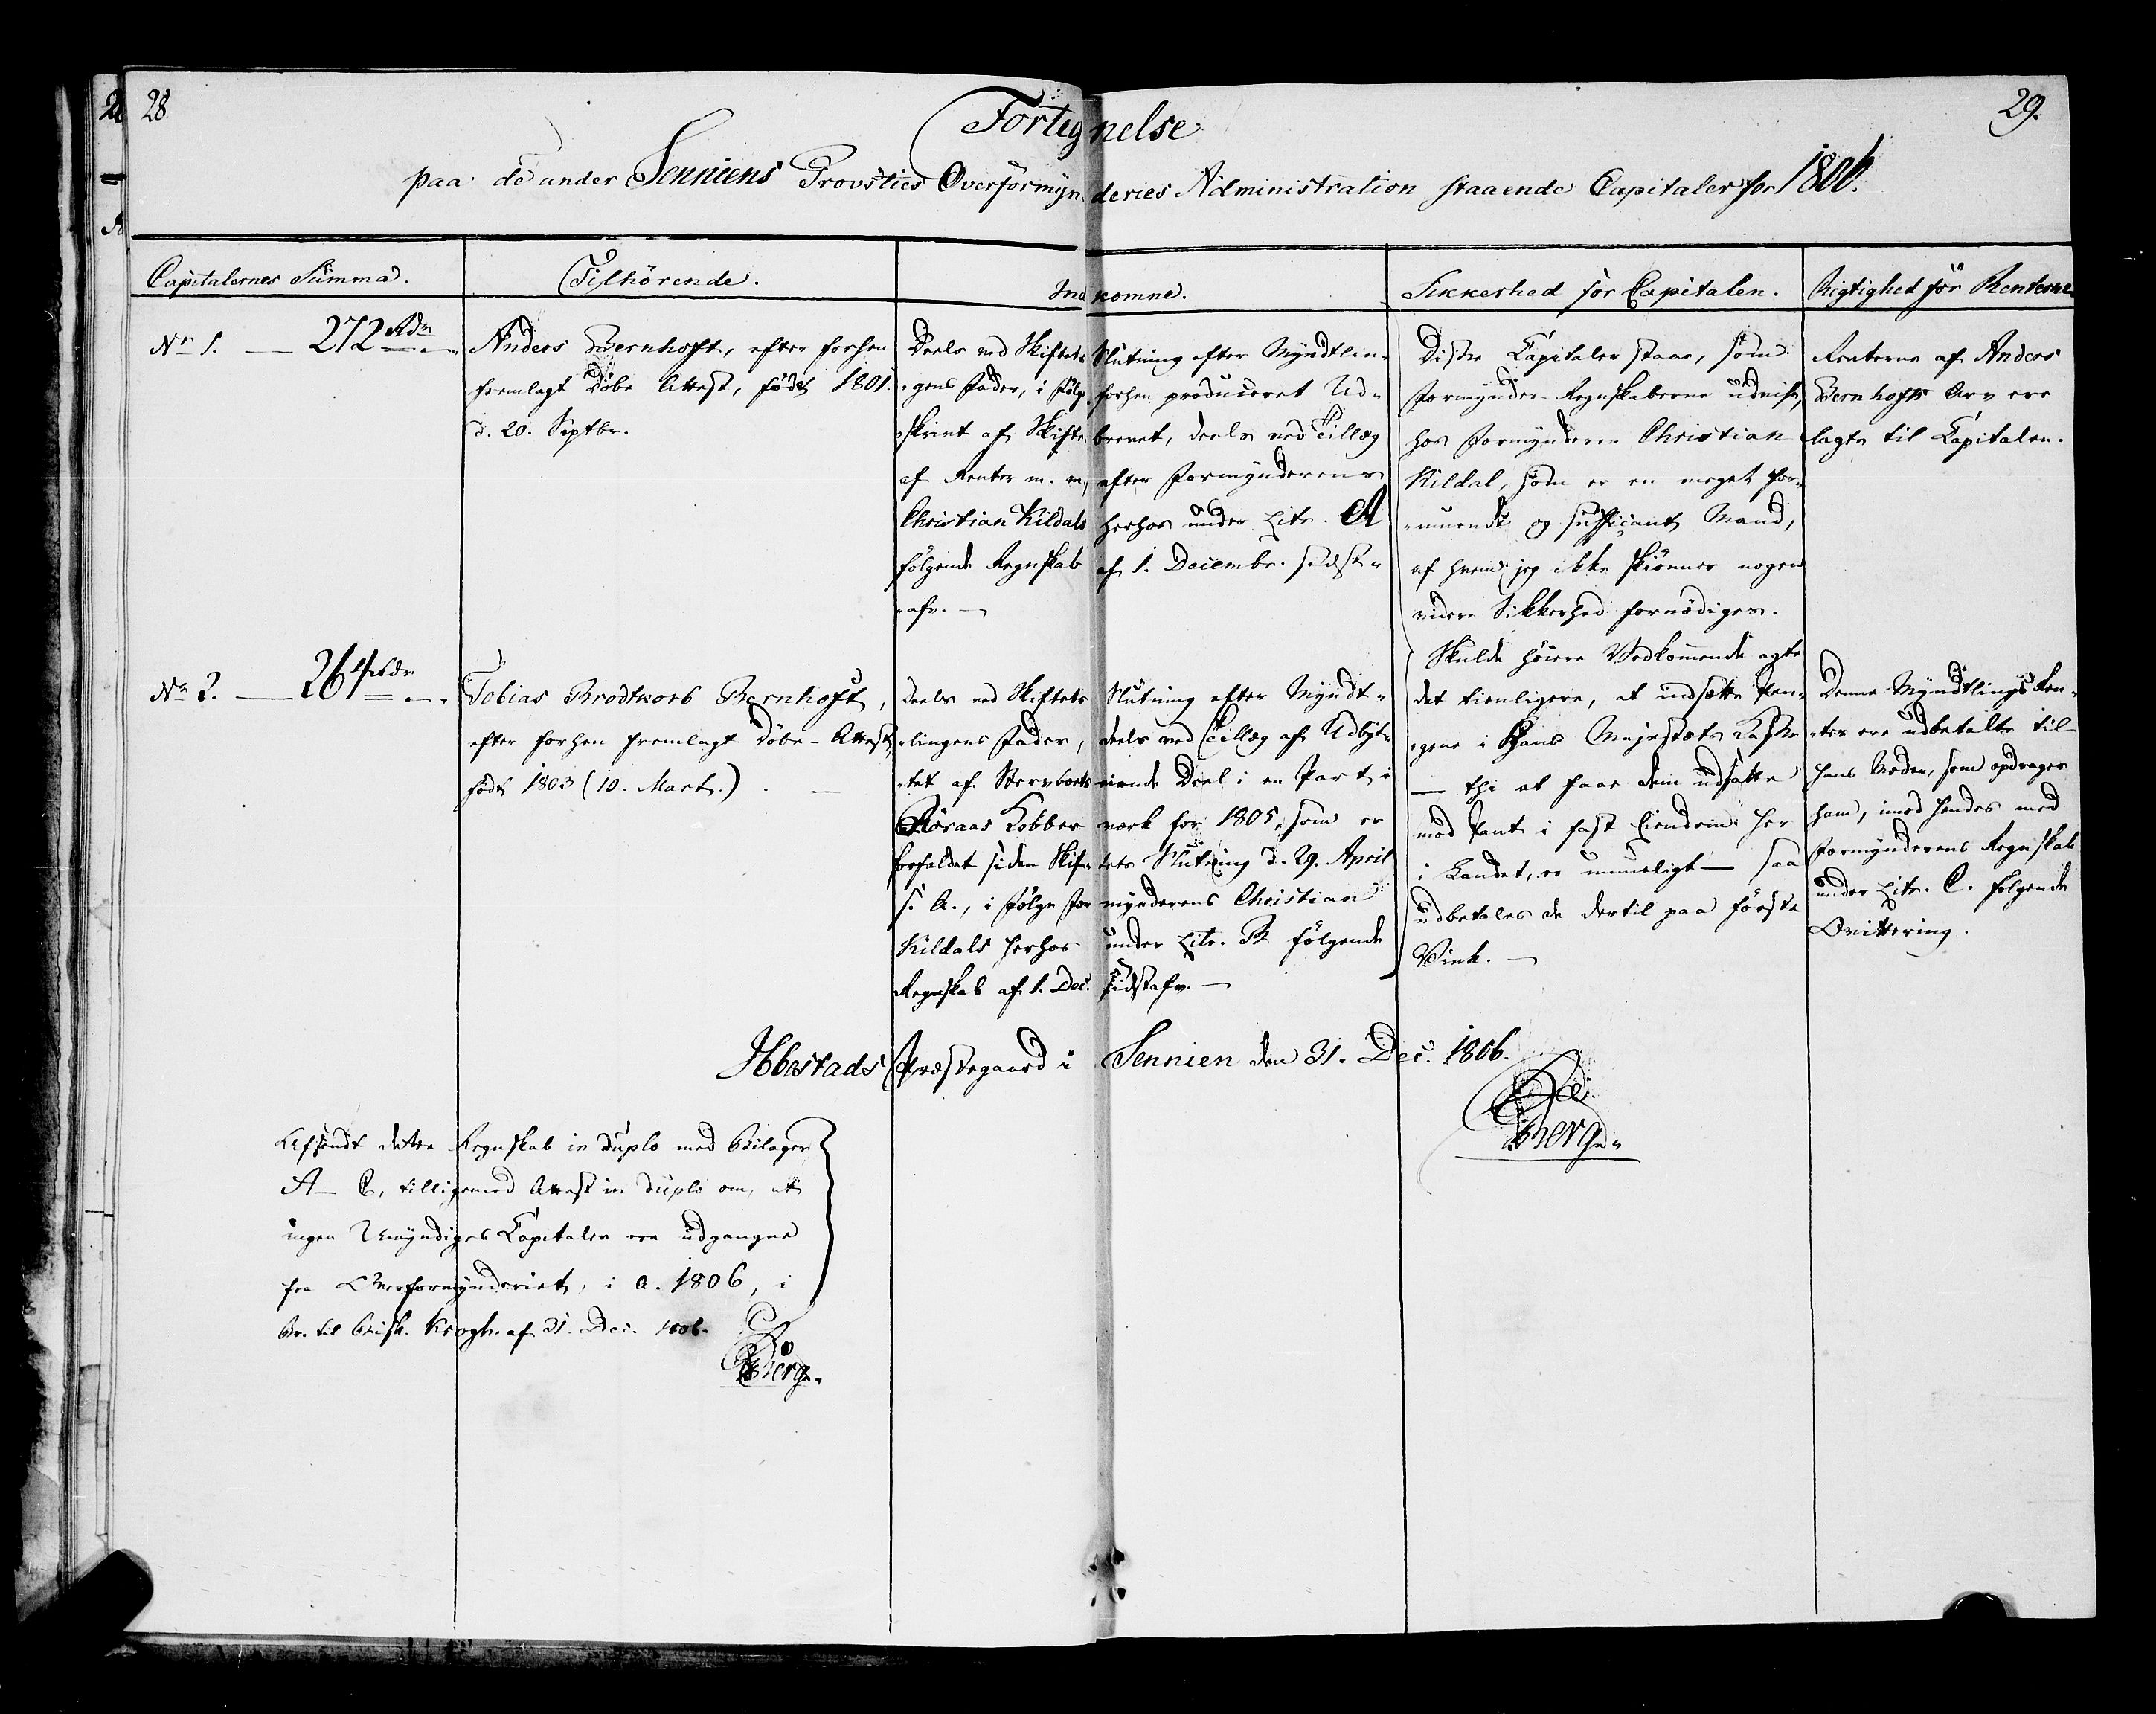 28.
29.
Fortegnelse
paa de under Senniens Provsties Overformynderies Administration staaende Capitaler for 1806.
Capitalernes Summa.
Tilhörende.
Indkomne.
Sikkerhed for Capitalen.
Rigtighed for Renterne
No 1. — 272 Rdr
Anders Bernhoft, efter forhen
fremlagt Döbe Attest, född 1801.
d. 20. Septbr.
Deels ved Skiftets Slutning efter Myndtlin-
gens Fader, i Fölge forhen produceret Ud-
skrivt af Skiftebrevet, deels ved Tillæg
af Renter m. m, efter Formynderens
Christian Kildals herhos under Litr. A
fölgende Regnskab af 1. Decembr. sidst-
afv. —
Disse Capitaler staae, som
Formynder-Regnskaberne udvise,
hos Formynderen Christian
Kildal, som er en meget for-
muende og sufficant Mand,
af hvem jeg ikke skiönner nogen
videre Sikkerhed fornödiges.
Skulde höiere Vedkommende agte
det tienligere, at indsætte Pen-
gene i Hans Majestæts Kasse
— thi at faae dem udsatte
mod Pant i fast Eiendom her
i Landet, er umueligt — saa
udbetales de dertil paa förste
Vink. —
Renterne af Anders
Bernhofts Arv ere
lagte til Capitalen.
No 2. — 264 Rdr
Tobias Brodtkorb Bernhoft,
efter forhen fremlagt Döbe-Attest,
född 1803 (10. Mart.) . —
Deels ved Skiftets Slutning efter Myndt-
lingens Fader, deels ved Tillæg af Udbyt-
tet af Stervboets eiende Deel i en Part i
Röraas Kobberværk for 1805, som er
forfaldet siden Skiftets Slutning d. 29. April
s. A., i Fölge Formynderens Christian
Kildals herhos under Litr. B fölgende
Regnskab af 1. Dec. sidstafv. —
Denne Myndtlings Ren-
ter ere udbetalte til
hans Moder, som opdrager
ham, imod hendes med
Formynderens Regnskab
under Litr. C. fölgende
Qvittering.
Ibbestads Præstegaard i Sennien den 31. Dec. 1806.
Berg
Afsendt dette Regnskab in duplo med Bilager
A — C, tilligemed Attest in duplo om, at
ingen Umyndiges Capitaler ere udgangne
fra Overformynderiet, i A. 1806, i
Br. til Bisk. Krogh af 31. Dec. 1806.
Berg